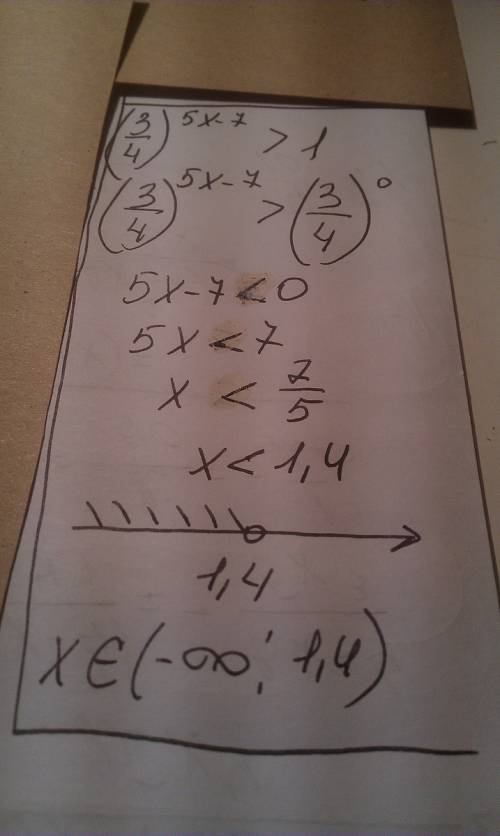 (3/4)^(5x-7) > 1
(3/4)^(5x-7) > (3/4)^0
5x-7 < 0
5x < 7
x < 7/5
x < 1,4
1,4
x∈(-∞; 1,4)